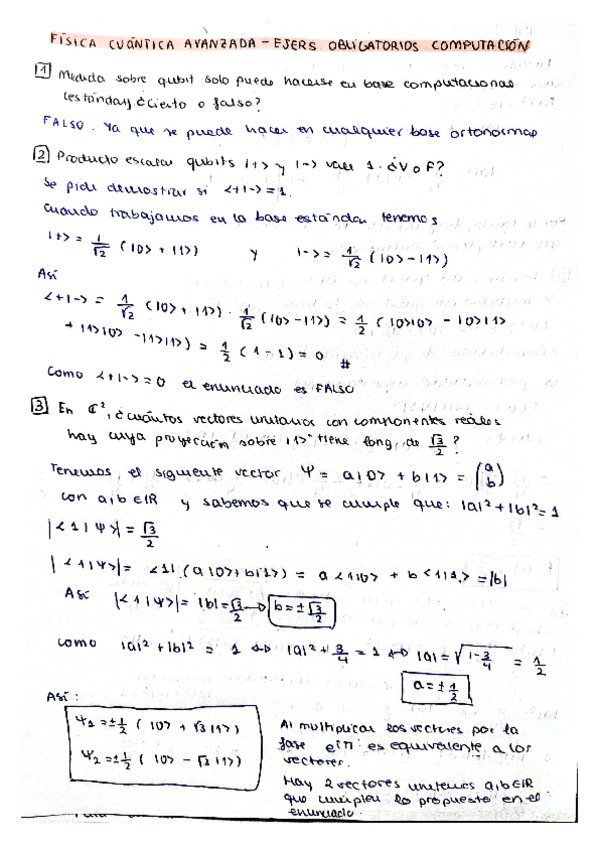 FÍSICA CUÁNTICA AVANZADA - EJERS OBLIGATORIOS COMPUTACIÓN
1 Medida sobre qubit solo puede hacerse en base computacional
(estándar) ¿Cierto o falso?
FALSO. Ya que se puede hacer en cualquier base ortonormal
2 Producto escalar qubits |+> y |-> vale 1. ¿V o F?
Se pide demostrar si <+|-> = 1.
Cuando trabajamos en la base estándar, tenemos
|+> = 1/√2 (|0> + |1>) y |-> = 1/√2 (|0> - |1>)
Así
<+|-> = 1/√2 (|0> + |1>) · 1/√2 (|0> - |1>) = 1/2 (|0>|0> - |0>|1>
+ |1>|0> - |1>|1>) = 1/2 (1 - 1) = 0 #
Como <+|-> = 0 el enunciado es FALSO
3 En ℂ², ¿cuántos vectores unitarios con componentes reales
hay cuya proyección sobre |1> tiene long. de √3/2 ?
Tenemos el siguiente vector Ψ = a|0> + b|1> = (a b)
con a,b ∈ ℝ y sabemos que se cumple que: |a|² + |b|² = 1
|<1|Ψ>| = √3/2
|<1|Ψ>| = <1| (a|0> + b|1>) = a<1|0> + b<1|1> = |b|
Así |<1|Ψ>| = |b| = √3/2 → b = ± √3/2
como |a|² + |b|² = 1 ↔ |a|² + 3/4 = 1 ↔ |a| = √1 - 3/4 = 1/2
a = ± 1/2
Así :
Ψ₁ = ± 1/2 ( |0> + √3 |1>)
Ψ₂ = ± 1/2 ( |0> - √3 |1>)
Al multiplicar los vectores por la
fase e^iπ es equivalente a los
vectores.
Hay 2 vectores unitarios a,b ∈ ℝ
que cumplen lo propuesto en el
enunciado.